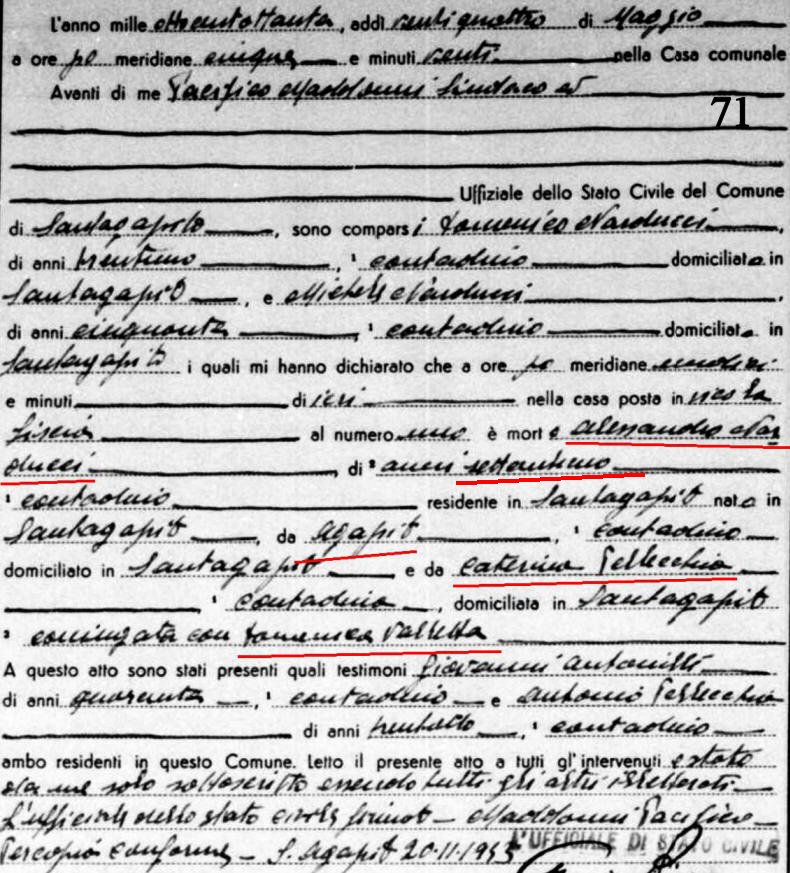 L'anno mille ottocentottanta, addì venti quattro di Maggio
a ore po meridiane cinque e minuti venti nella Casa comunale
Avanti di me Pacifico Maddonni Sindaco ed
71
Uffiziale dello Stato Civile del Comune
di Santagapito, sono comparsi Domenico Narducci,
di anni trentuno, contadino domiciliato in
Santagapito, e Michele Narducci,
di anni cinquanta, contadino domiciliato in
Santagapito i quali mi hanno dichiarato che a ore po meridiane undici
e minuti di ieri nella casa posta in vico la
Liscia al numero uno è morto Alessandro Nar
ducci, di anni settantuno
contadino residente in Santagapito nato in
Santagapito, da Agapito, contadino
domiciliato in Santagapito e da Caterina Pellecchia
contadina, domiciliata in Santagapito
coniugato con Domenica Valletta
A questo atto sono stati presenti quali testimoni Giovanni Antonilli
di anni quaranta, contadino e Antonio Pellecchia
di anni trentotto, contadino
ambo residenti in questo Comune. Letto il presente atto a tutti gl'intervenuti è stato
da me solo sottoscritto essendo tutti gli altri illetterati
L'ufficiale dello stato civile firmato Maddonni Pacifico
Per copia conforme S. Agapito 20.11.1953 L'UFFICIALE DI STATO CIVILE